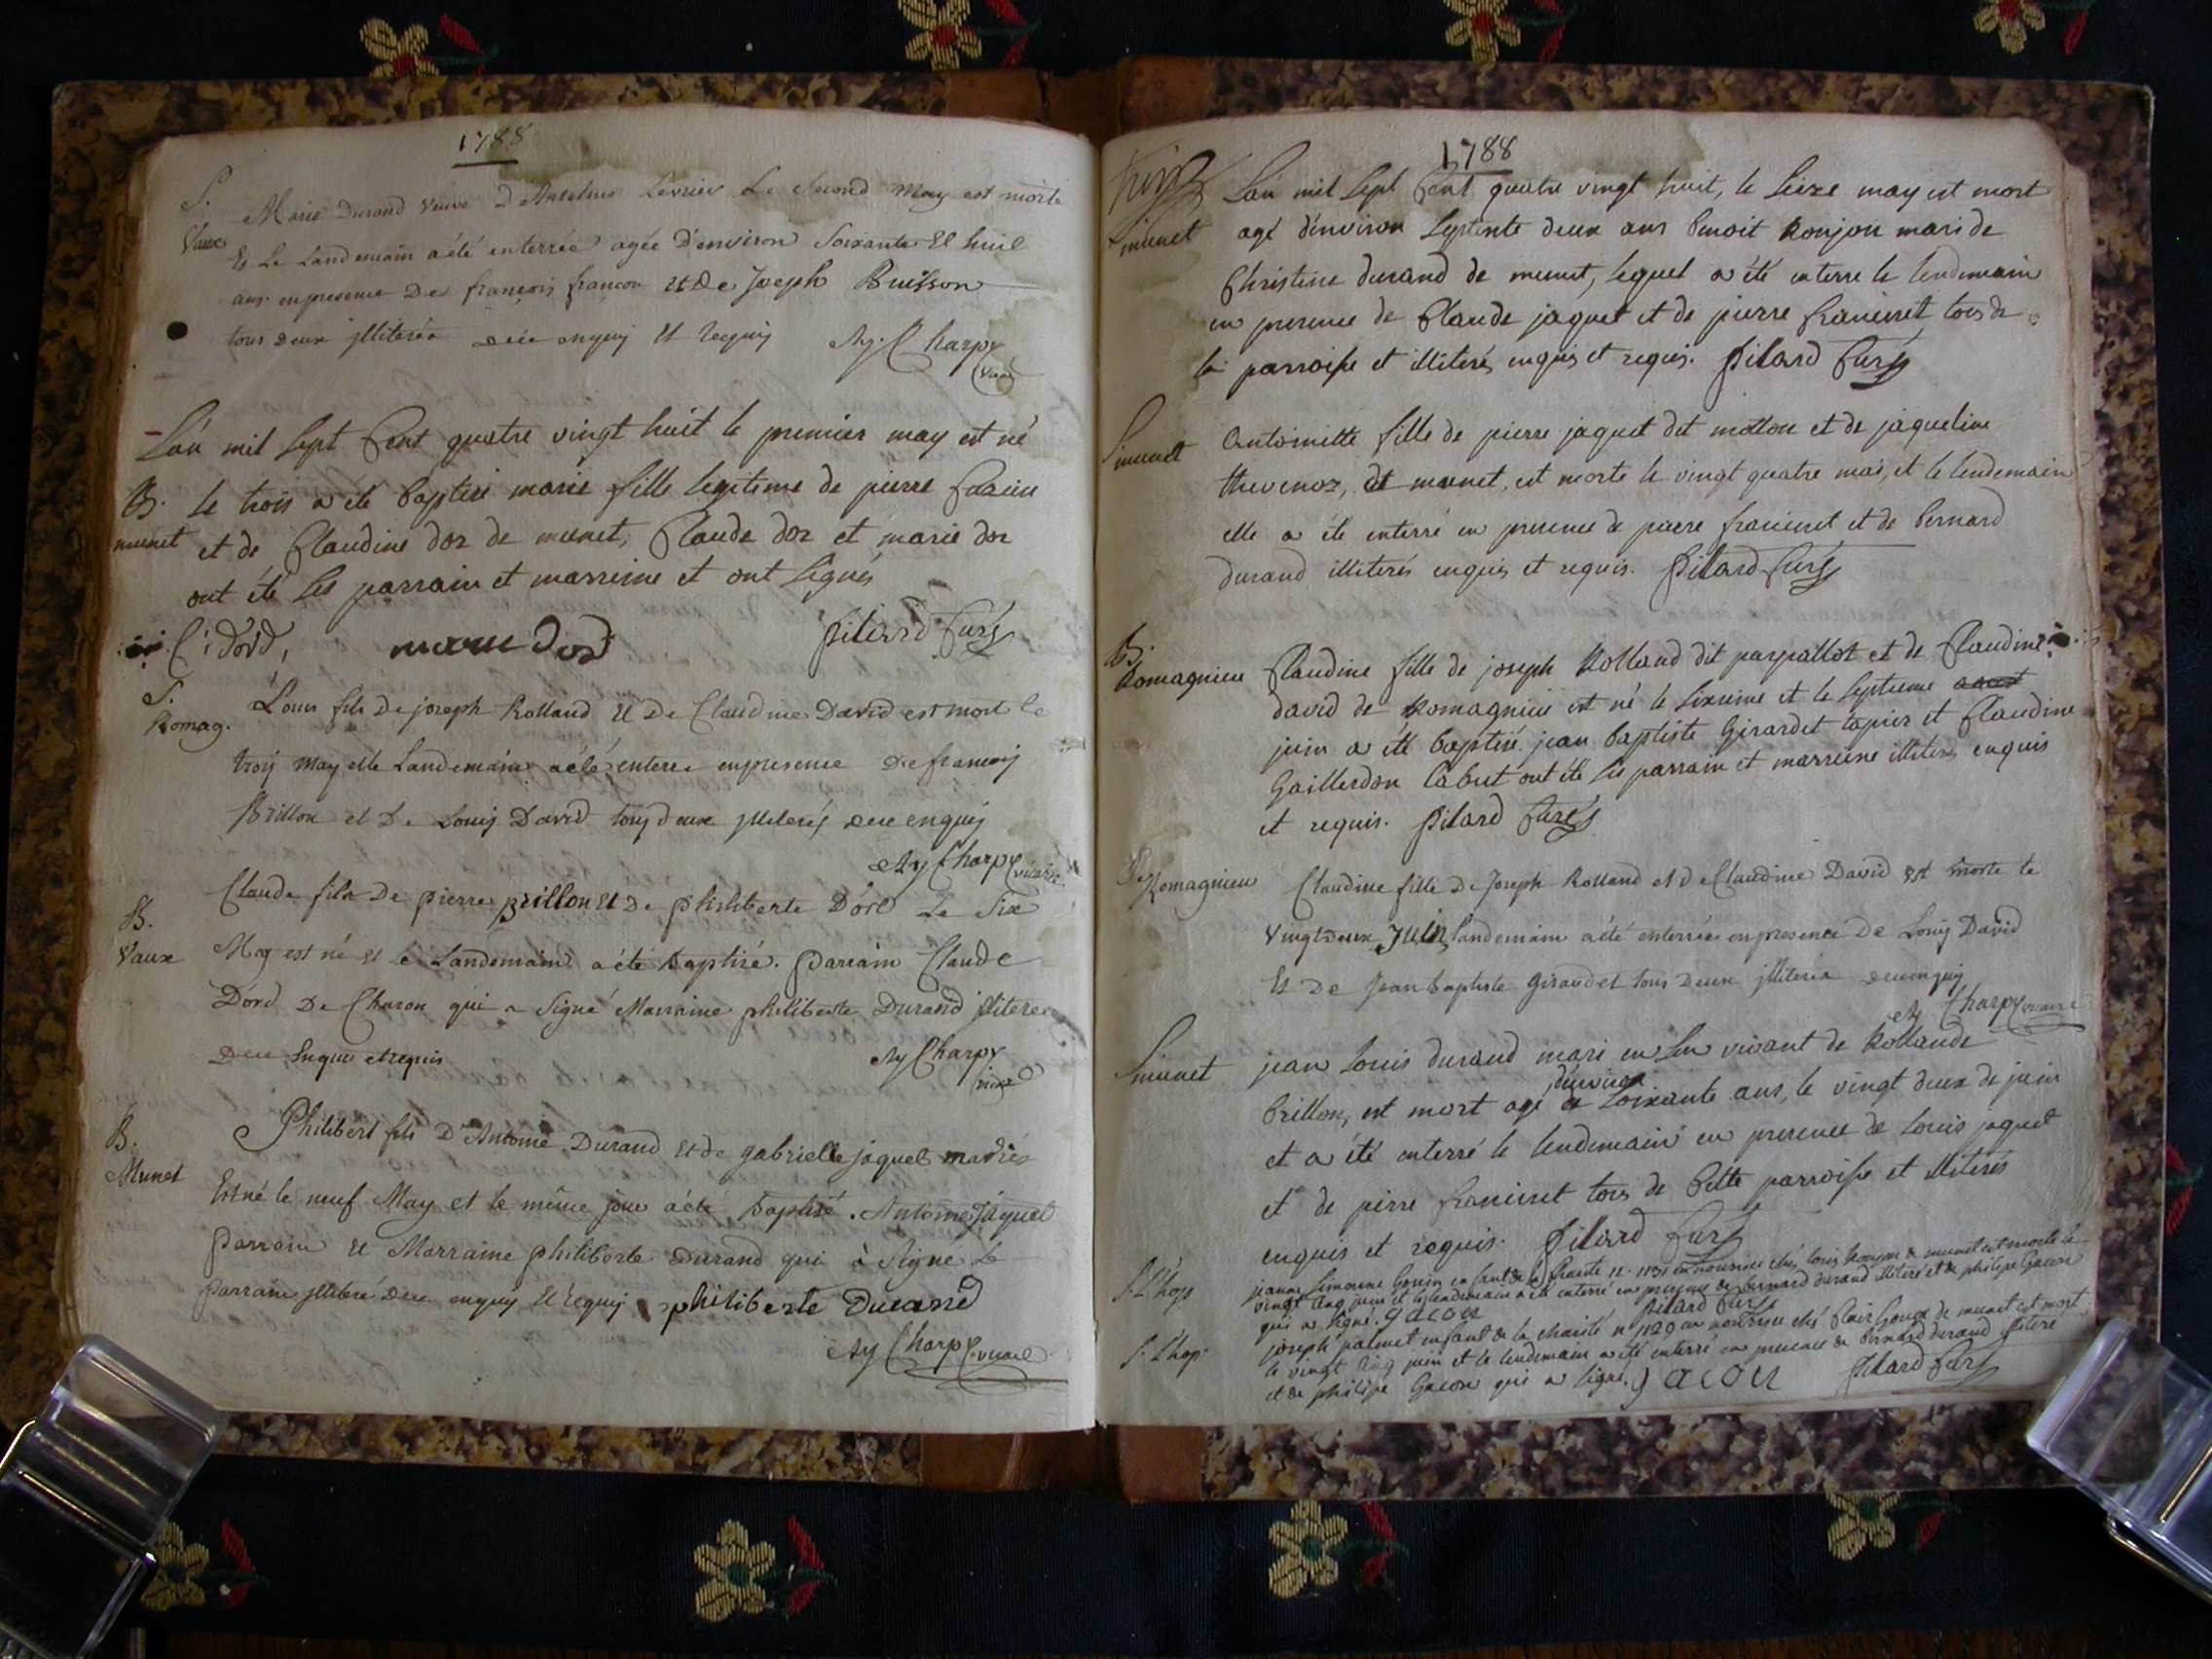 1788
S.
Vaux
Marie Durand veuve D'Antelme Levrier Le Second May est morte
Et Le Landemain a été enterrée agée D'environ Soixante Et huit
ans en presence De françois françon Et De Joseph Buisson
tous deux illiterés de ce enquis Et Requis Ay. Charpy
vicaire
L'an mil sept Cent quatre vingt huit le premier may est né
B.
munet
et le trois a été baptisé marie fille legitime de pierre
et de Claudine dor de munet, Claude dor et marie dor
ont été les parrain et marreine et ont signés
C: dord, marie dord pilard Curé
S.
Romag.
Louis fils De joseph Rolland Et De Claudine David est mort le
trois may et le Landemain a été enterré en presence De françois
Brillon et De Louis David tous deux illiterés de ce enquis
Ay Charpy vicaire
B.
Vaux
Claude fils De pierre Brillon Et De philiberte Dord Le Six
May est né Et le Landemain a été baptisé. parrain Claude
Dord De Charon qui a Signé Marraine philiberte Durand illiterée
De ce Enquis et requis Ay Charpy
vicaire
B.
Munet
Philibert fils D'Antoine Durand et de gabrielle jaquet mariés
Est né le neuf May et le même jour a été baptisé. Antoine jaquet
parrain Et Marraine philiberte Durand qui à Signé Le
parrain illiteré de ce enquis Et requis philiberte Durand
Ay Charpy vicaire
1788
S munet
L'an mil sept Cent quatre vingt huit, le seize may est mort
agé d'environ septente deux ans benoit Ronjon mari de
Christine durand de munet, lequel a été enterré le lendemain
en presence de Claude jaquet et de pierre franeinet, tous de
la parroisse et illiterés enquis et requis. pilard Curé
S munet
Antoinette fille de pierre jaquet dit motton et de jaqueline
thevenoz, de munet, est morte le vingt quatre mai, et le lendemain
elle a été enterré en presence de pierre franeinet et de bernard
durand illiterés enquis et requis. pilard Curé
B.
Romagnieu
Claudine fille de joseph Rolland dit parpaillot et de Claudine
david de Romagnieu est né le sixieme et le septieme
juin a été baptisé. jean baptiste Girardet tapier et Claudine
Gaillerdon Cabut ont été les parrain et marreine illiterés enquis
et requis. pilard Curé
S. Romagnieu
Claudine fille De Joseph Rolland et de Claudine David est morte le
vingt deux Juin landemain a été enterrée en presence De Louis David
Et De Jean baptiste girardet tous Deux illiterés de ce enquis
Ay Charpy vicaire
S munet
jean Louis durand mari en son vivant de Rollande
d'environ
brillon, est mort agé de soixante ans, le vingt deux de juin
et a été enterré le lendemain en presence de louis jaquet
et de pierre franeinet tous de Cette parroisse et illiterés
enquis et requis. pilard Curé
S. L'hop
jeanne Simonne enfant de la Charité n. 1131 en nourrice chés louis Ronjon de munet est morte le
vingt Cinq juin et le lendemain a été enterré en presence de bernard durand illiteré et de philipe Gacon
qui a signé. gacon pilard Curé
S. L'hop.
joseph palmet enfant de la charité n 1120 en nourrice ché Clair de munet est mort
le vingt Cinq juin et le lendemain a été enterré en presence de bernard durand illiteré
et de philipe Gacon qui a signé. gacon pilard Curé